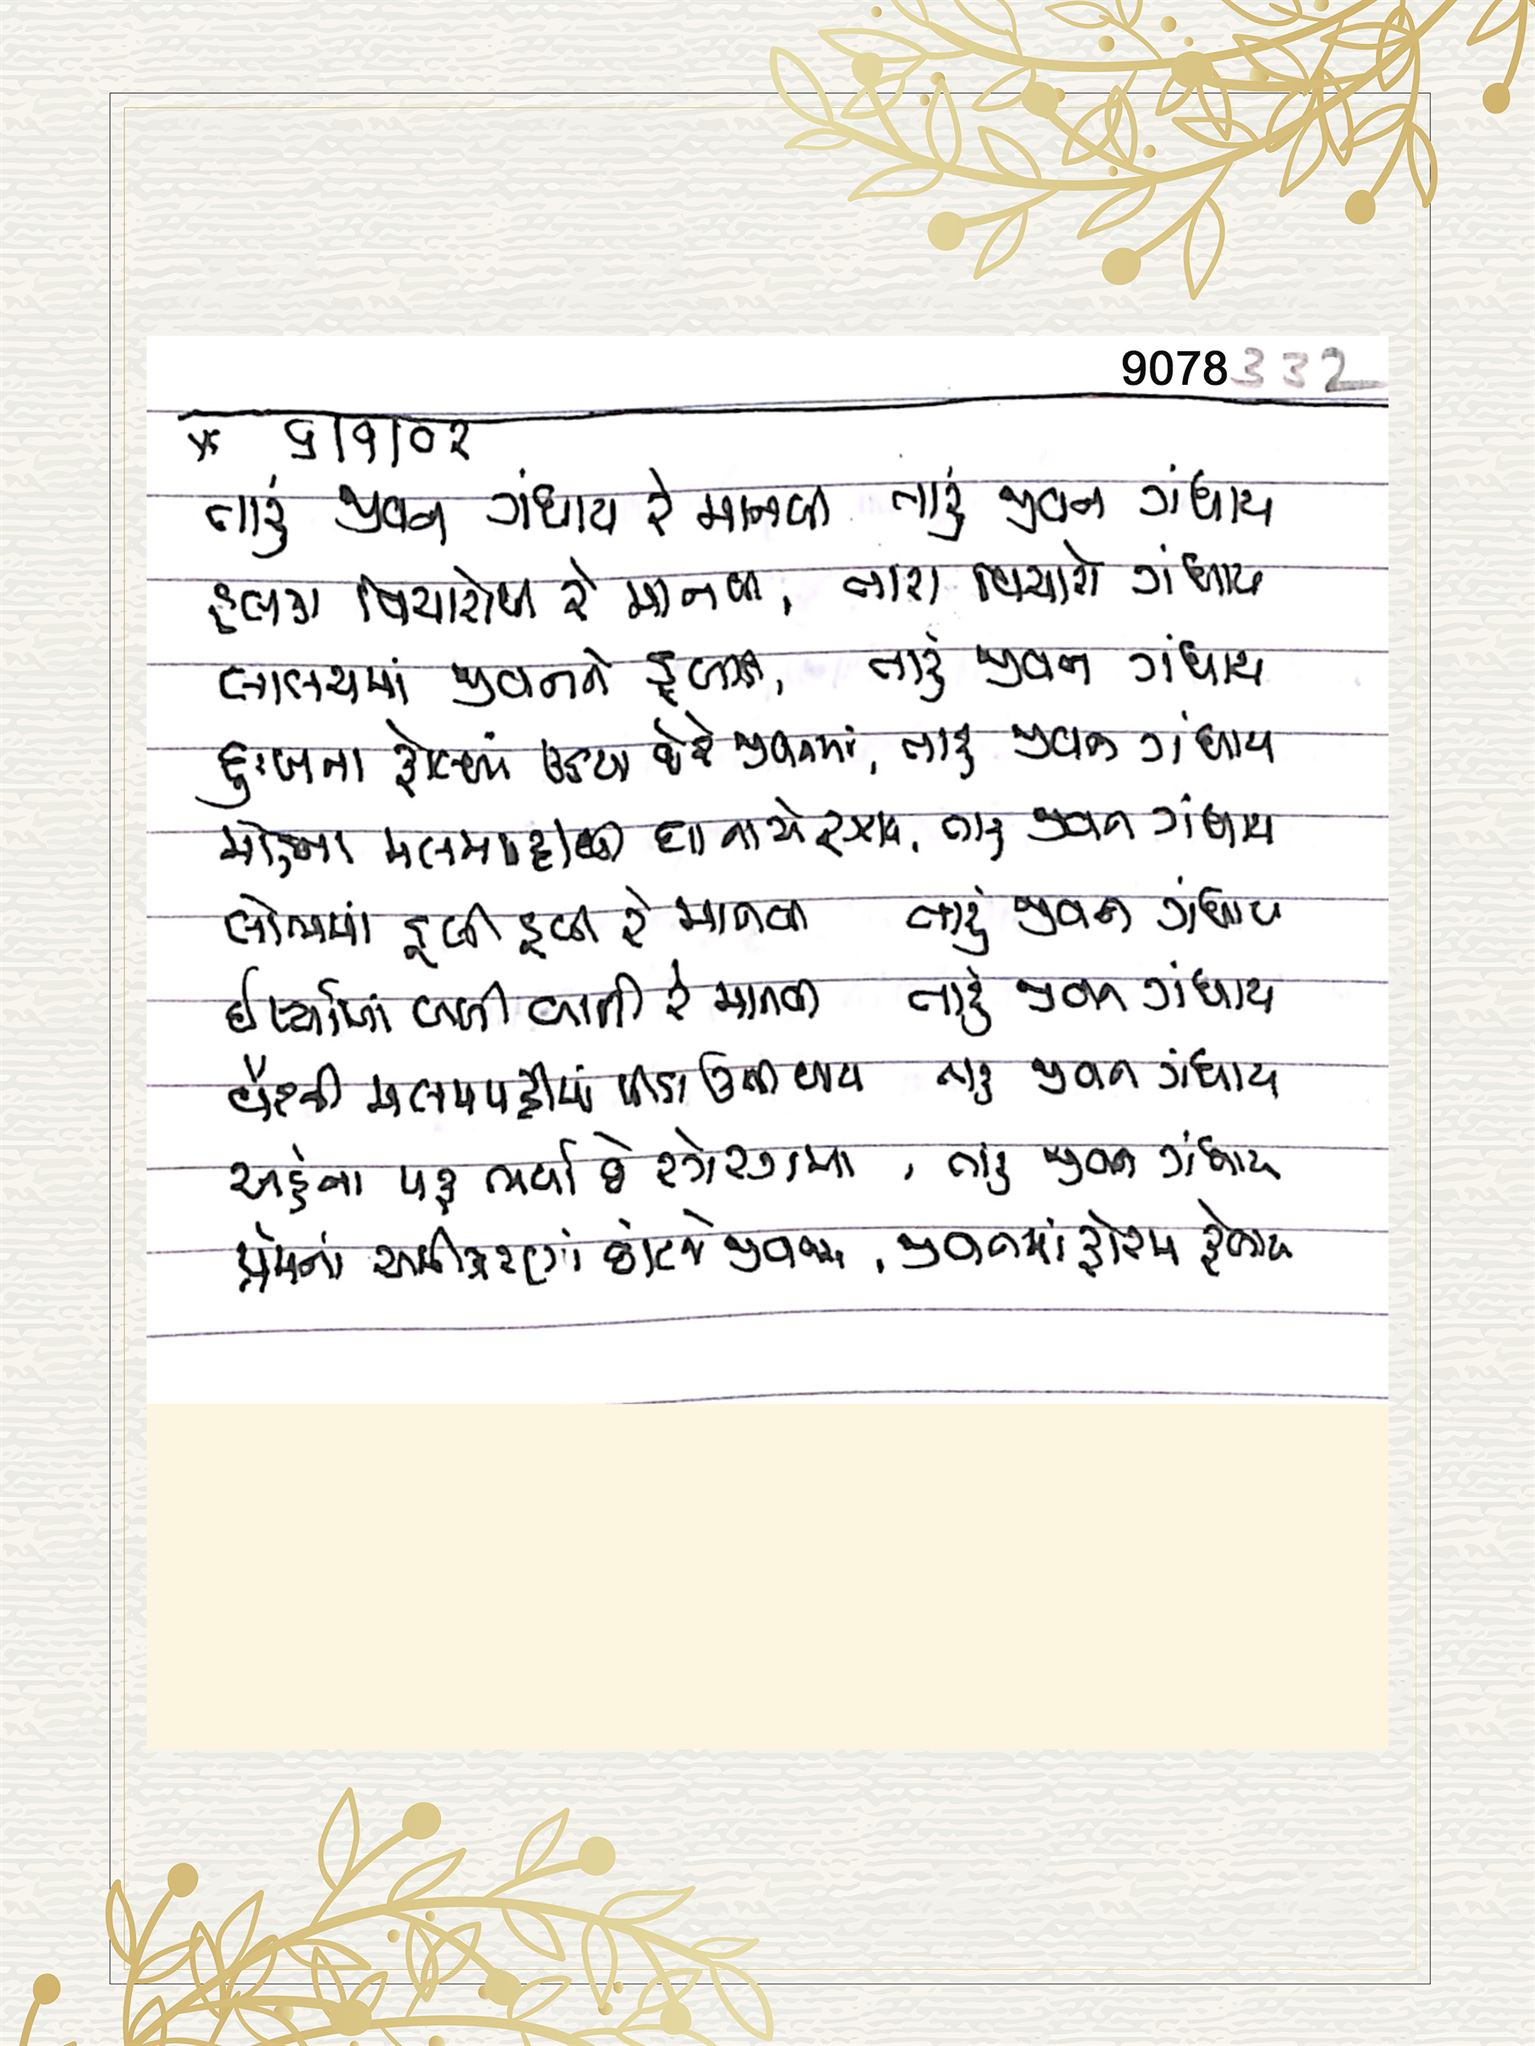 9078 332
* ૬/૧/૦૨
તારું જીવન ગંધાય રે માનવી તારું જીવન ગંધાય
હલકા વિચારોથી રે માનવી, તારા વિચારો ગંધાય
લાલચમાં જીવનને ડૂબાડી, તારું જીવન ગંધાય
દુઃખના ફોલ્લાં ઉઠયા છે રે જીવનમાં, તારૂ જીવન ગંધાય
મોહના મલમ ઘા ના એ રૂઝાય, તારૂ જીવન ગંધાય
લોભમાં ડૂબી ડૂબી રે માનવી તારું જીવન ગંધાય
ઈર્ષ્યામાં બળી બાળી રે માનવી તારું જીવન ગંધાય
વૈરની મલમપટ્ટીમાં પીડા ઉભી થાય તારૂ જીવન ગંધાય
અહંના પરૂ ભર્યા છે રગેરગમાં, તારૂ જીવન ગંધાય
પ્રેમનાં અમીઝરણાં છાંટજે જીવનમાં, જીવનમાં ફોરમ ફેલાય